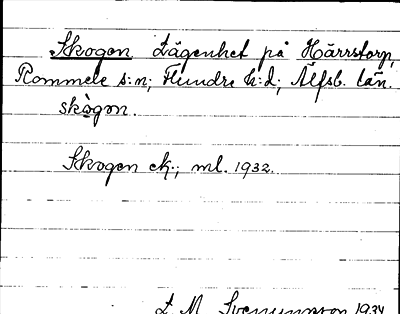 Skogen Lägenhet på Härrstorp,
Rommele s:n; Flundre h:d; Älfsb. län.
skògm.
Skogen ek.; ml. 1932.
L. M. Svenungsson 1934